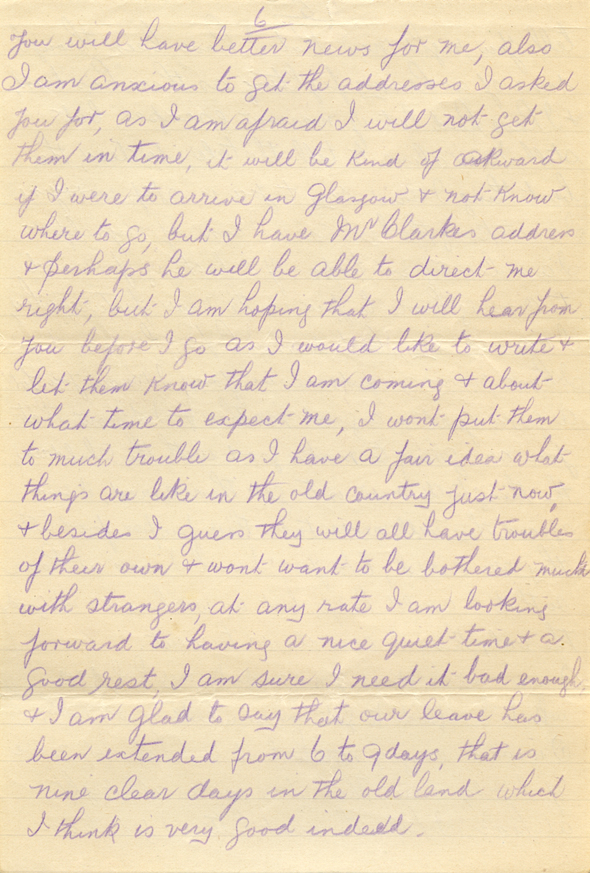 6
you will have better news for me, also
I am anxious to get the addresses I asked
you for, as I am afraid I will not get
them in time, it will be kind of akward
if I were to arrive in Glasgow & not know
where to go, but I have Mr Clarkes address
& perhaps he will be able to direct me
right, but I am hoping that I will hear from
you before I go as I would like to write &
let them know that I am coming & about
what time to expect me, I wont put them
to much trouble as I have a fair idea what
things are like in the old country just now,
& besides I guess they will all have troubles
of their own & wont want to be bothered much
with strangers, at any rate I am looking
forward to having a nice quiet time & a
good rest, I am sure I need it bad enough,
& I am glad to say that our leave has
been extended from 6 to 9 days, that is
nine clear days in the old land which
I think is very good indeed.